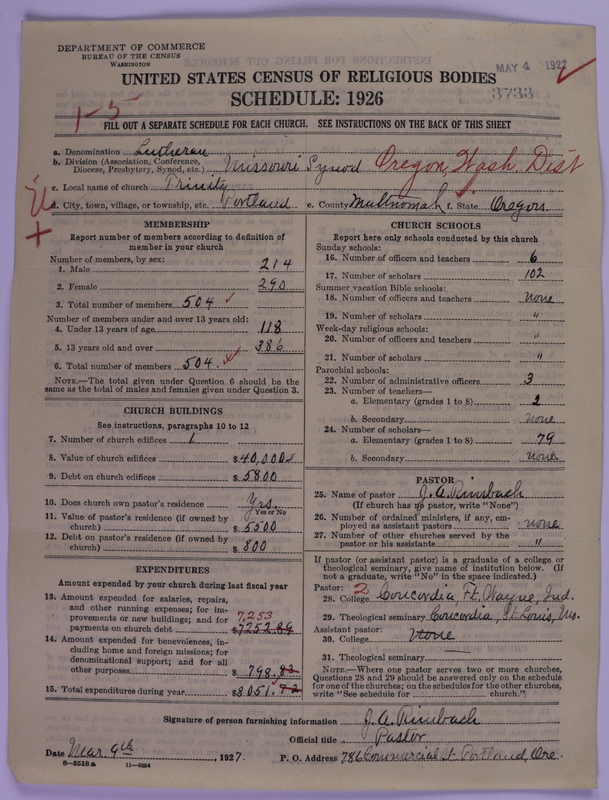 DEPARTMENT OF COMMERCE
BUREAU OF THE CENSUS
WASHINGTON
MAY 4 1927
UNITED STATES CENSUS OF RELIGIOUS BODIES
3733
SCHEDULE: 1926
1-5
FILL OUT A SEPARATE SCHEDULE FOR EACH CHURCH. SEE INSTRUCTIONS ON THE BACK OF THIS SHEET
a. Denomination Lutheran
b. Division (Association, Conference, Diocese, Presbytery, Synod, etc.) Missouri Synod Oregon, Wash. Dist
c. Local name of church Trinity
d. City, town, village, or township, etc. Portland e. County Multnomah f. State Oregon
MEMBERSHIP
Report number of members according to definition of
member in your church
Number of members, by sex:
1. Male 214
2. Female 290
3. Total number of members 504
Number of members under and over 13 years old:
4. Under 13 years of age 118
5. 13 years old and over 386
6. Total number of members 504
NOTE.—The total given under Question 6 should be the
same as the total of males and females given under Question 3.
CHURCH BUILDINGS
See instructions, paragraphs 10 to 12
7. Number of church edifices 1
8. Value of church edifices $40,000
9. Debt on church edifices $5800
10. Does church own pastor's residence Yes.
Yes or No
11. Value of pastor's residence (if owned by
church) $5500
12. Debt on pastor's residence (if owned by
church) $800
EXPENDITURES
Amount expended by your church during last fiscal year
13. Amount expended for salaries, repairs,
and other running expenses; for im-
provements or new buildings; and for 7,253
payments on church debt $7252.89
14. Amount expended for benevolences, in-
cluding home and foreign missions; for
denominational support; and for all
other purposes $798.83
15. Total expenditures during year $8051.72
CHURCH SCHOOLS
Report here only schools conducted by this church
Sunday schools:
16. Number of officers and teachers 6
17. Number of scholars 102
Summer vacation Bible schools:
18. Number of officers and teachers none
19. Number of scholars "
Week-day religious schools:
20. Number of officers and teachers "
21. Number of scholars "
Parochial schools:
22. Number of administrative officers 3
23. Number of teachers—
a. Elementary (grades 1 to 8) 2
b. Secondary none
24. Number of scholars—
a. Elementary (grades 1 to 8) 79
b. Secondary none
PASTOR
25. Name of pastor J. A. Rimbach
(If church has no pastor, write "None")
26. Number of ordained ministers, if any, em-
ployed as assistant pastors none
27. Number of other churches served by the
pastor or his assistants "
If pastor (or assistant pastor) is a graduate of a college or
theological seminary, give name of institution below. (If
not a graduate, write "No" in the space indicated.)
Pastor: 2
28. College Concordia, Ft. Wayne, Ind.
29. Theological seminary Concordia, St. Louis, Mo.
Assistant pastor:
30. College none
31. Theological seminary
NOTE.—Where one pastor serves two or more churches,
Questions 28 and 29 should be answered only on the schedule
for one of the churches; on the schedules for the other churches,
write "See schedule for church."
Signature of person furnishing information J. A. Rimbach
Official title Pastor
Date Mar. 9th, 1927. P. O. Address 786 Commercial St. Portland, Ore.
8—5518 a 11—9054